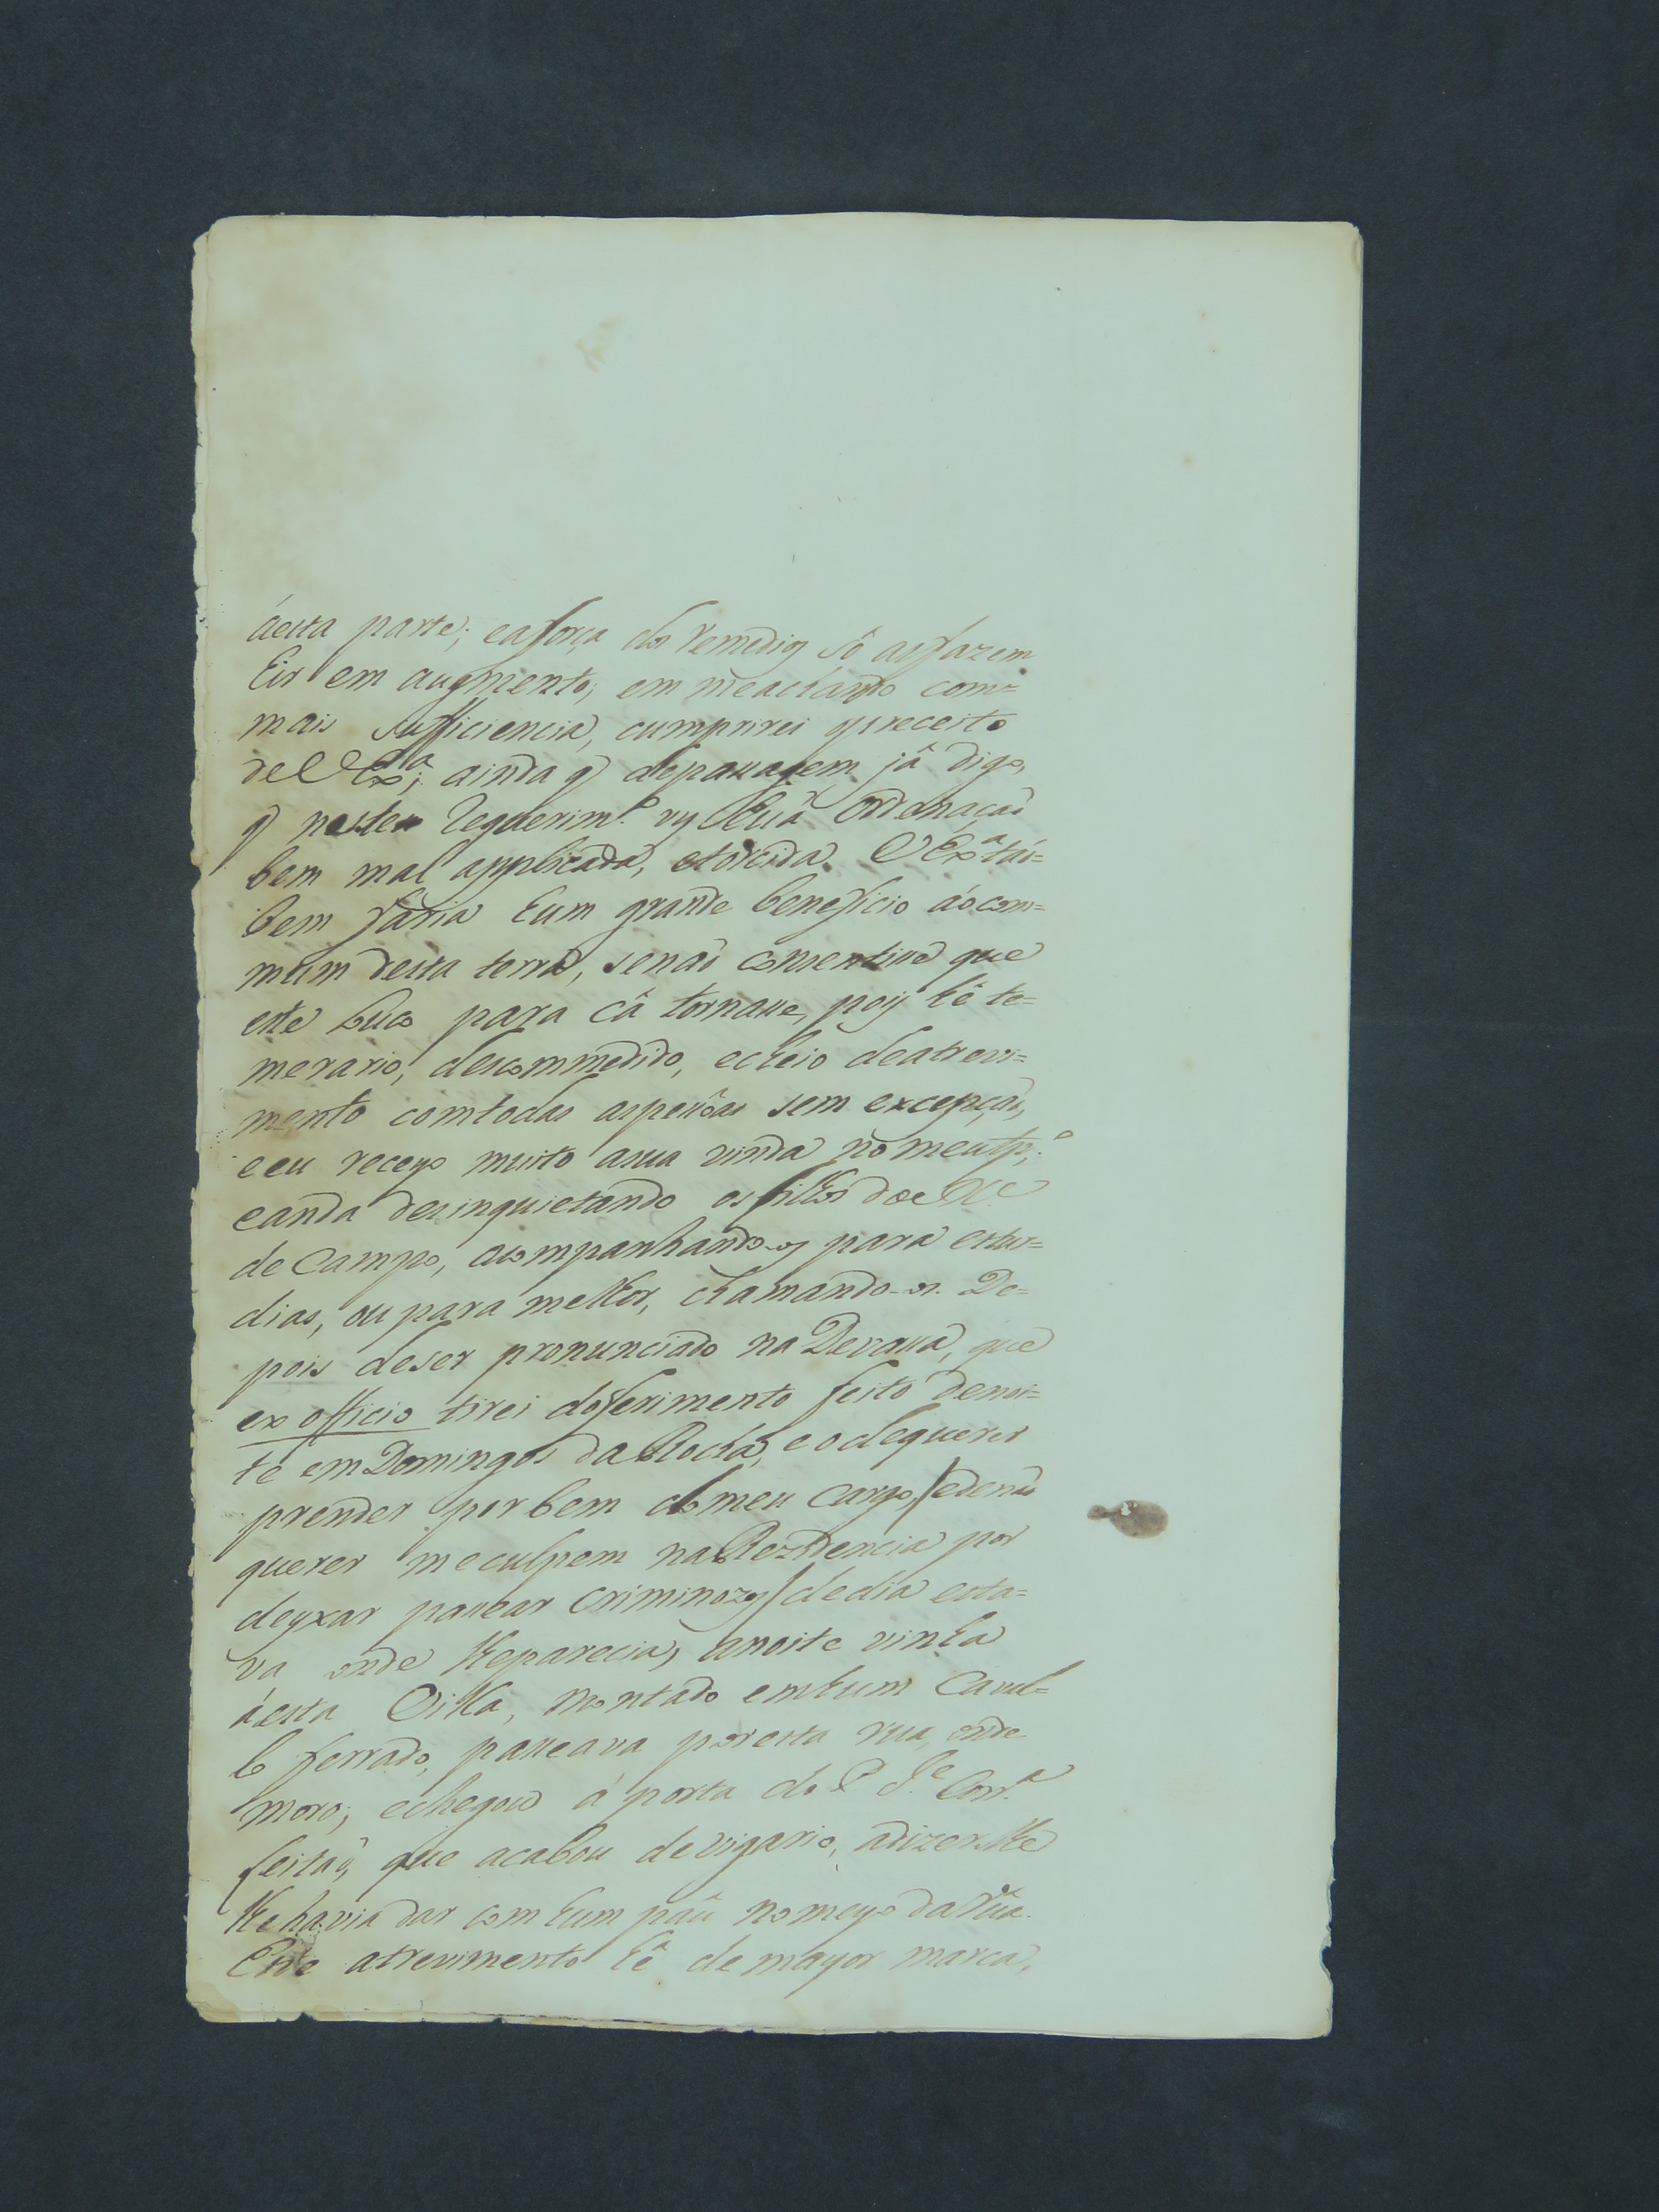 áesta parte; eaforça dos remedios só asfazem
hir em augmento; em meachando com=
mais sufficiencia, cumprirei opreceito
de VEx.ª; ainda q̃ depassagem já digo,
q̃ neste requerim.to vy huã Ordenaçaõ
bem mal applicada, etorcida. VEx.ª tá=
bem faria hum grande beneficio áocom=
mum desta terra, senaõ consentisse que
este louco para cá tornasse, poiz hé te=
merario, descommedido, echeio deatrevi=
mento comtodas aspessôas sem excepçaõ,
eeu receyo muito asua vinda nomeutp.º;
eanda desinquietando osfilhos do M.e
de Campo, acompanhando-os para estur=
dias, ou para melhor, chamando-os. De=
pois deser pronunciado na Devassa, que
ex officio tirei doferimento feito denoi=
te em Domingos da Rocha, e odequerer
prender por bem domeu cargo, /edenaõ
querer meculpem na Rezidencia por
deyxar passear criminozos/ dedia esta=
va onde lheparecia, anoite vinha
áesta Villa, montado emhum Caval=
lo ferrado, passeava poresta rua, onde
moro; echegou á porta do P. J.e Corr.ª
feitaõ, que acabou devigario, adizerlhe
lhehavia dar com hum páu nomeyo darúa.
Este atrevimento hé de mayor marca,